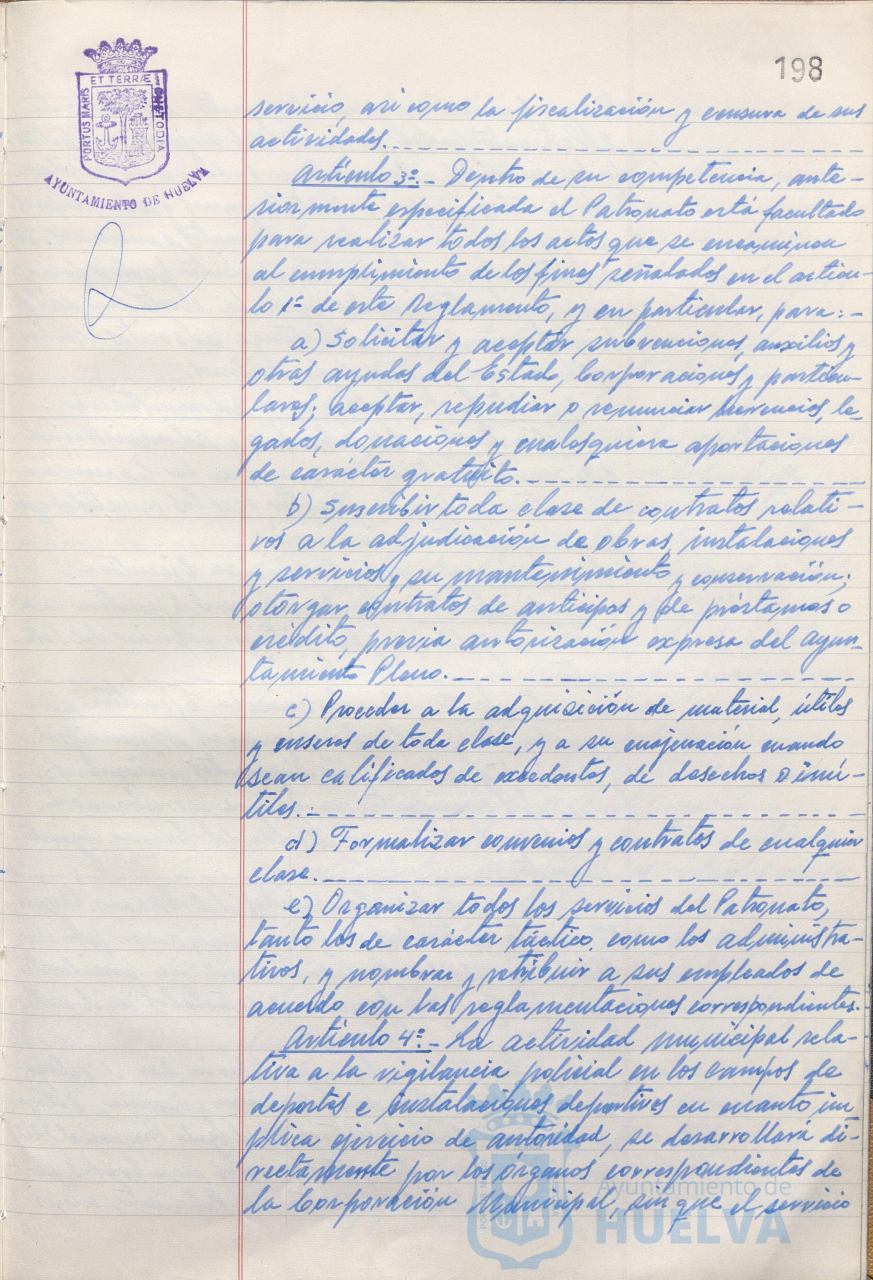 198
ET TERRÆ
PORTUS MARIS
CUSTODIA
AYUNTAMIENTO DE HUELVA
servicio, asi como la fiscalización y censura de sus
actividades.
Artículo 3º.- Dentro de su competencia, ante-
riormente especificada el Patronato está facultado
para realizar todos los actos que se encaminen
al cumplimiento de los fines señalados en el artícu-
lo 1º de este Reglamento, y en particular, para:-
a) Solicitar y aceptar subvenciones, auxilios y
otras ayudas del Estado, Corporaciones y particu-
lares; aceptar, repudiar o renunciar herencias, le-
gados, donaciones y cualesquiera aportaciones
de carácter gratuito.
b) Suscribir toda clase de contratos relati-
vos a la adjudicación de obras, instalaciones
y servicios y su mantenimiento y conservación;
otorgar contratos de anticipos y de préstamos o
crédito, previa autorización expresa del ayun-
tamiento Pleno.
c) Proceder a la adquisición de material, útiles
y enseres de toda clase, y a su enajenación cuando
sean calificados de excedentes, de desechos o inú-
tiles.
d) Formalizar convenios y contratos de cualquier
clase.
e) Organizar todos los servicios del Patronato,
tanto los de carácter táctico, como los administra-
tivos, y nombrar y retribuir a sus empleados de
acuerdo con las reglamentaciones correspondientes.
Artículo 4º.- La actividad municipal rela-
tiva a la vigilancia policial en los campos de
deportes e instalaciones deportivas en cuanto im
plica ejercicio de autoridad, se desarrollará di-
rectamente por los órganos correspondientes de
la Corporación Municipal, sin que el servicio
Ayuntamiento de
HUELVA